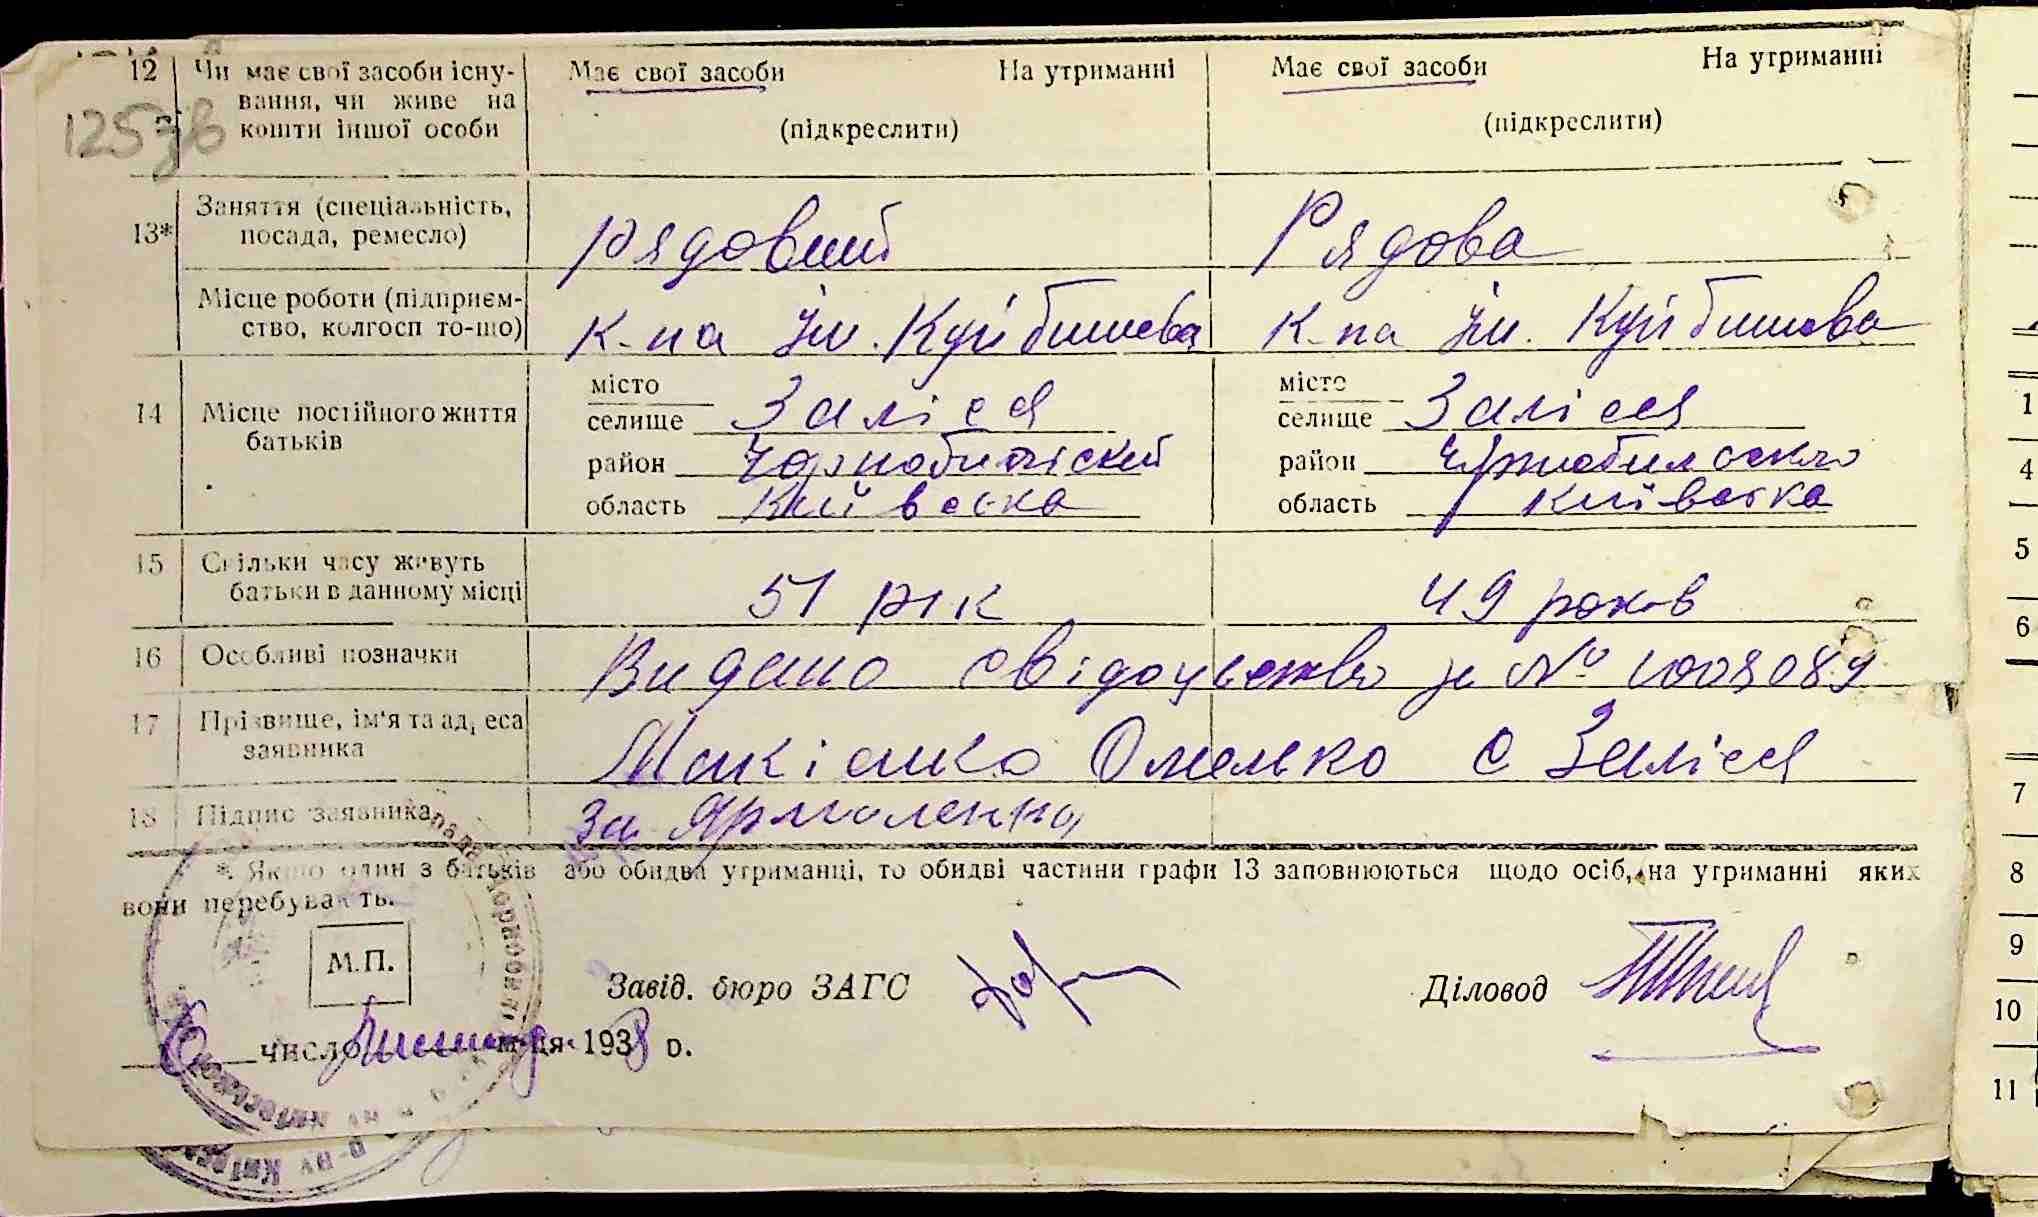 12 Чи має свої засоби існу- Має свої засоби На утриманні Має свої засоби На утриманні
вання, чи живе на
125зв кошти іншої особи (підкреслити) (підкреслити)
13* Заняття (спеціальність, Рядовий Рядова
посада, ремесло)
Місце роботи (підприєм- К-па ім. Куйбишева К-па ім. Куйбишева
ство, колгосп то-що)
місто місто
14 Місце постійного життя селище Залісся селище Залісся
батьків район Чорнобильский район
область Київська область Київська
15 Скільки часу живуть 51 рік 49 років
батьки в данному місці
16 Особливі позначки Видано свідоцтво за № 1008089
17 Прізвище, ім'я та адреса Омелько с Залісся
заявника
18 Підпис заявника За Ярмоленко
*. Якщо один з батьків або обидва утриманні, то обидві частини графи 13 заповнюються щодо осіб, на утриманні яких
вони перебувають.
М.П.
Завід. бюро ЗАГС Діловод
число м-ця 1938 р.
1
4
5
6
7
8
9
10
11